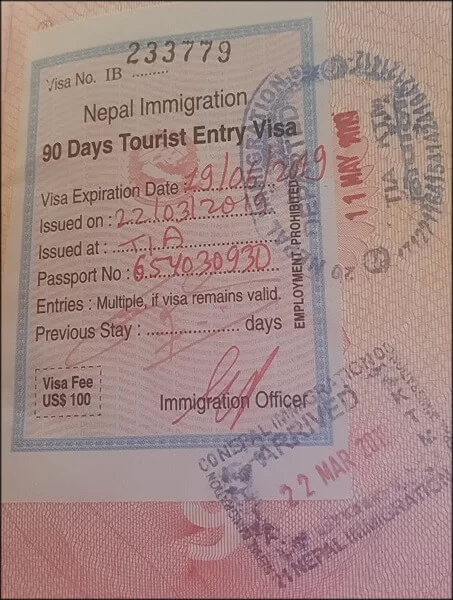 Visa No. IB 233779
Nepal Immigration
90 Days Tourist Entry Visa
Visa Expiration Date 19/06/2019
Issued on : 22/03/201
Issued at : TIA
Passport No : 654030930
Entries : Multiple, if visa remains valid.
Previous Stay : .................... days
Visa Fee
US$ 100
Immigration Officer
EMPLOYMENT PROHIBITED
11 MAY
TIA
NEPAL IMMIGRATION
ARRIVED
22 MAR 201
NEPAL IMMIGRATION